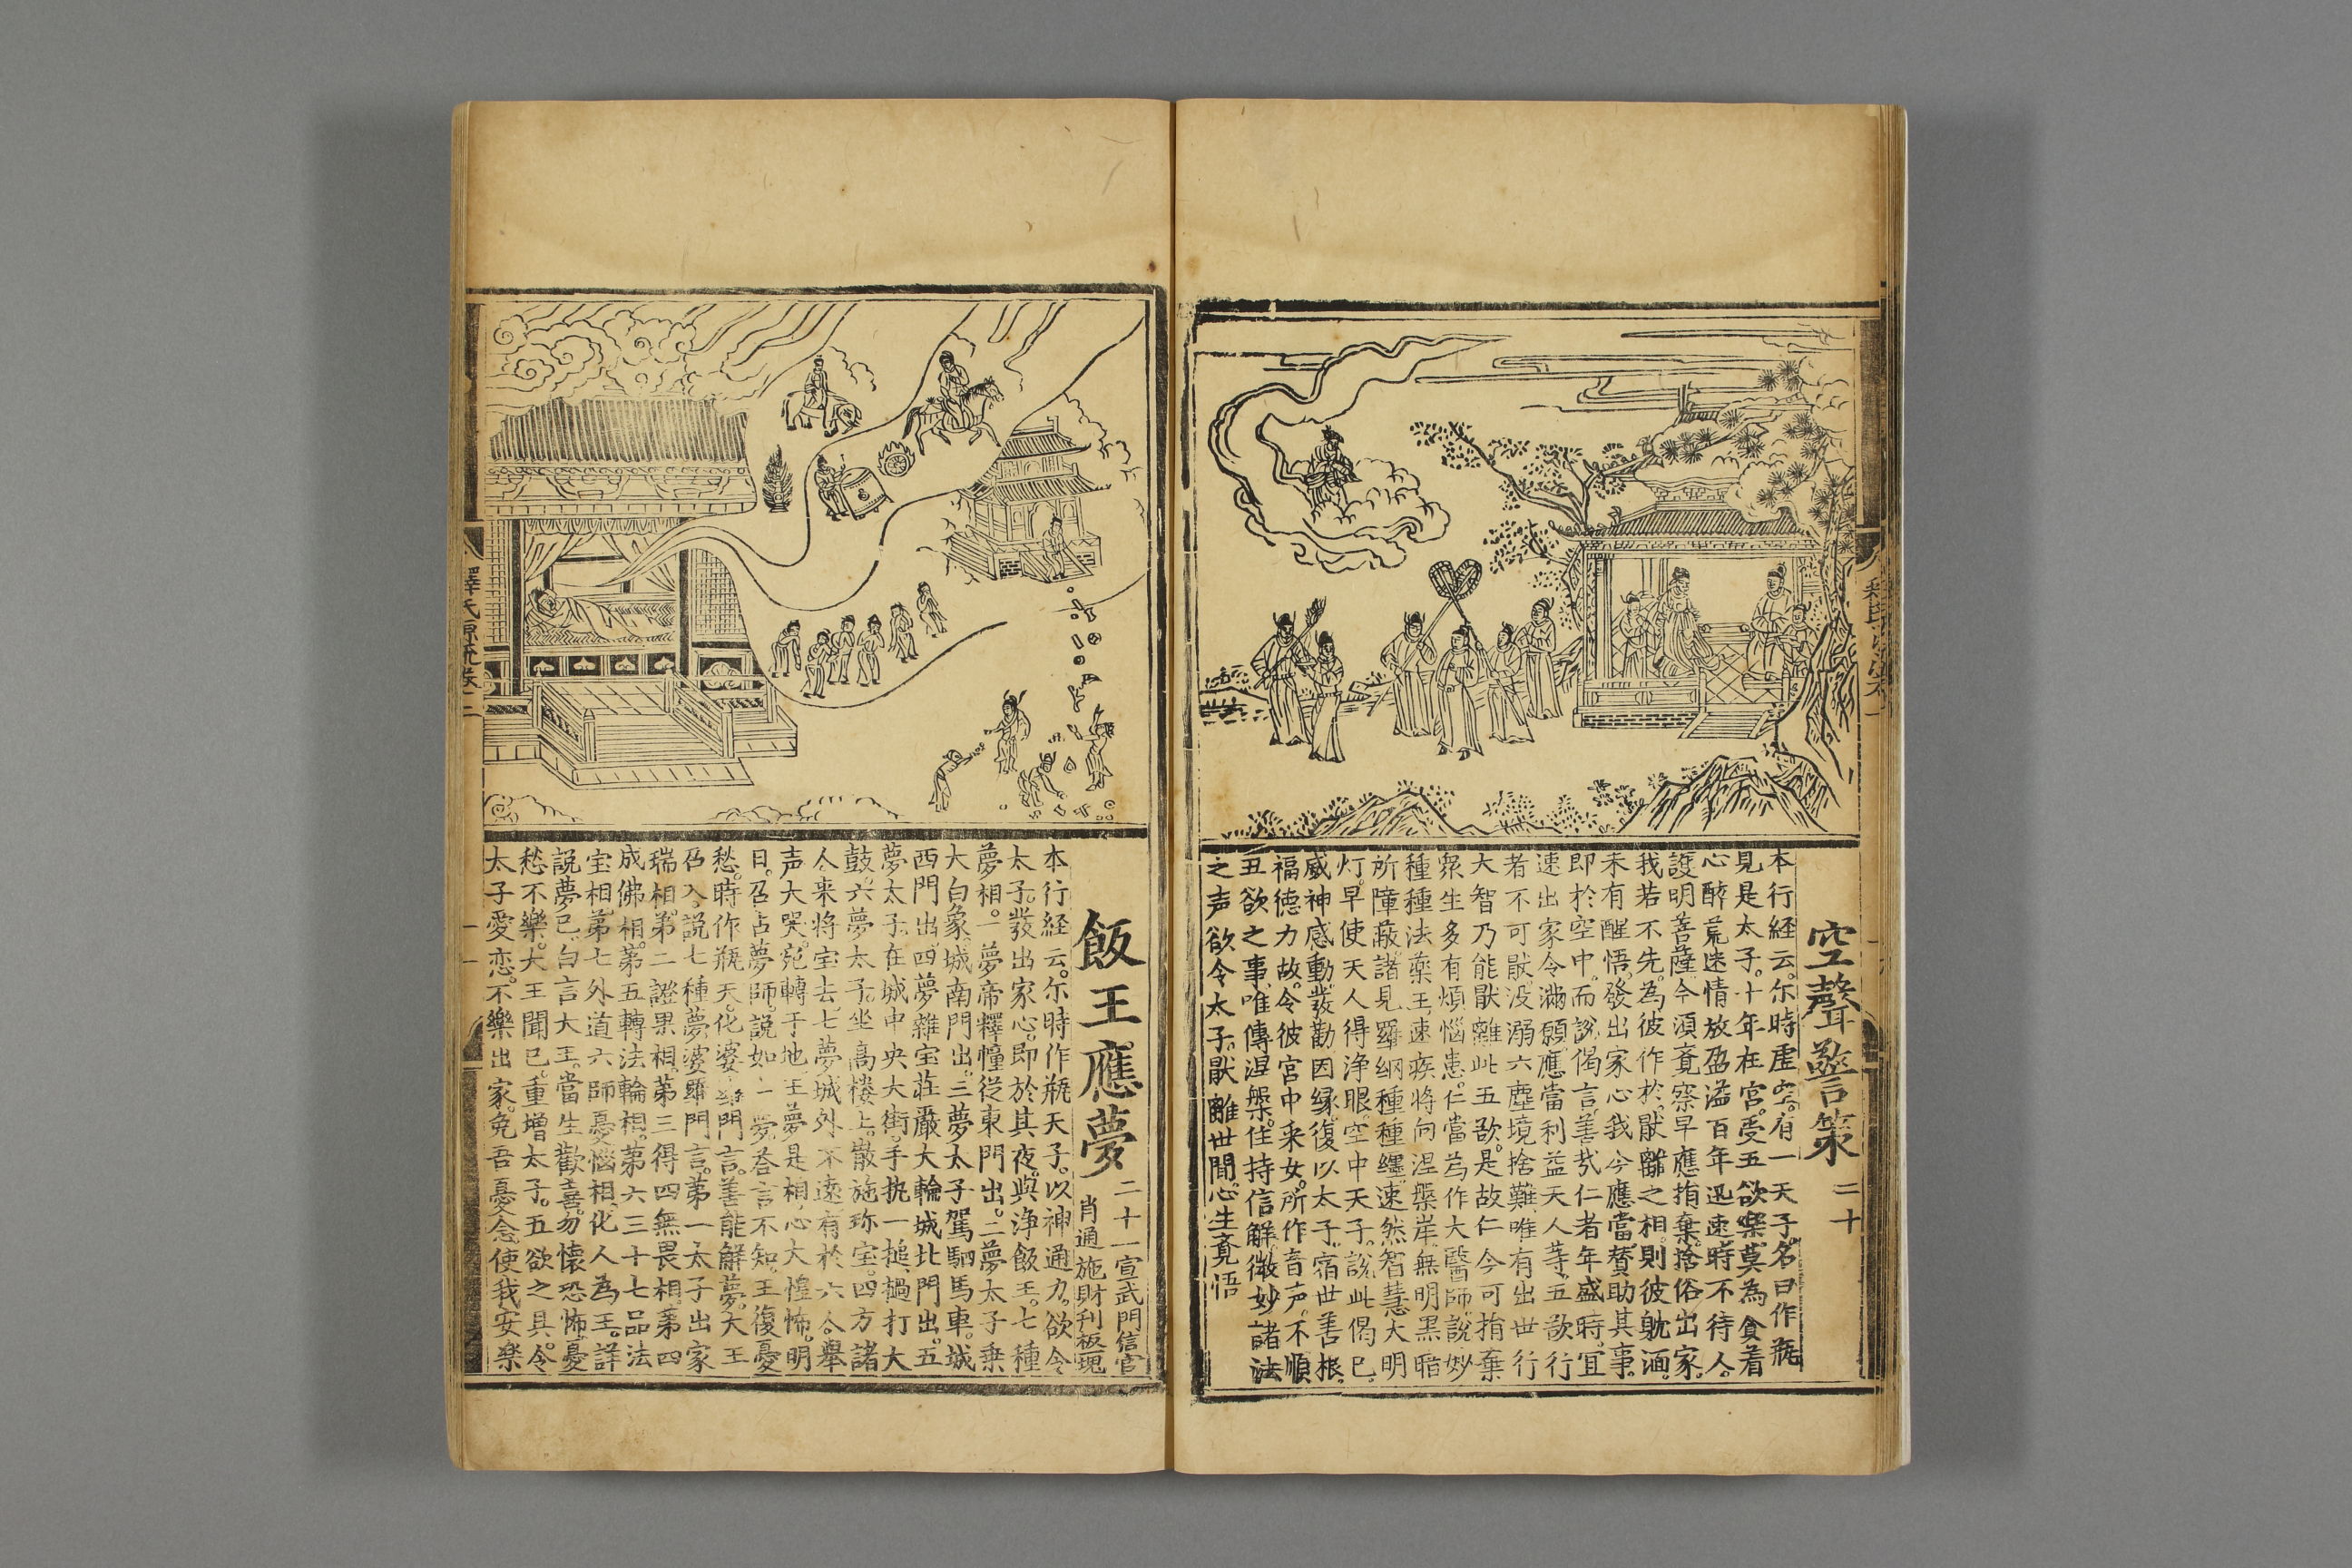 空聲警策 二十
本行経云。尓時虛空。有一天子。名曰作瓶
見是太子。十年在宮。受五欲樂。莫為貪着
心醉荒迷情放盈溢百年迅速。時不待人。
護明菩薩。今須覔察早應捐棄。捨俗出家。
我若不先。為彼作於。猒離之相。則彼躭湎。
未有醒悟。發出家心我今應當。賛助其事。
即於空中。而說偈言。善㢤仁者年盛時。宜
速出家令滿願。應當利益天人等。五欲行
者不可猒。没溺六塵境捨難。唯有出世行
大智乃能猒離此五欲。是故仁今可捐棄
衆生多有煩惱患。仁當為作大醫師。說妙
種種法藥王。速疾将向涅槃岸。無明黑暗
所障蔽。諸見羅網種種纒。速然智慧大明
灯。早使天人得浄眼。空中天子。說此偈已。
威神感動。發勸因縁。復以太子。宿世善根。
福徳力故。令彼宮中采女。所作音声。不順
丑欲之事。唯傳涅槃。住持信解。微妙諸法
之声欲令太子。猒離世間。心生覔悟
飯王應夢 二十一 宣武門信官
肖通施財刊板現
本行経云。尓時作瓶天子。以神通力。欲令
太子。發出家心。即於其夜。與浄飯王。七種
夢相。一夢帝釋幢從東門出。二夢太子乗
大白象。城南門出。三夢太子駕駟馬車。城
西門出。四夢雜宝荘嚴大輪城北門出。五
夢太子。在城中央大街。手執一搥。撾打大
鼓。六夢太子。坐高樓上。散施珎宝。四方諸
人来将宝去。七夢城外不遠。有於六人。舉
声大哭。宛轉于地。王夢是相。心大惶怖。明
日。召占夢師。說如上夢。荅言不知。王復憂
愁。時作瓶天。化婆羅門言。善能解夢。大王
召入。說七種夢。婆羅門言。第一太子出家
瑞相。第二證果相。第三得四無畏相。第四
成佛相。第五轉法輪相。第六三十七品法
宝相。第七外道六師憂惱相。化人為王。詳
說夢已。白言大王。當生歡喜。勿懷恐怖。憂
愁不樂。大王聞已。重增太子。五欲之具。令
太子愛恋。不樂出家。免吾憂念使我安樂
釋氏源流卷二